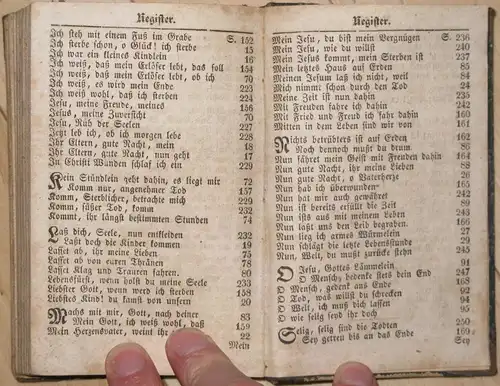 Register.
Ich steh mit einem Fuß im Grabe S. 152
Ich sterbe schon, o Glück! ich sterbe 15
Ich war ein kleines Kindlein 16
Ich weiß, daß mein Erlöser lebt, das soll 154
Ich weiß, daß mein Erlöser lebt, ob ich 70
Ich weiß, es wird mein Ende 223
Ich weiß wohl, daß ich sterben 224
Jesu, meine Freude, meines 156
Jesus, meine Zuversicht 70
Jesu, Ruh der Seelen 227
Jetzt leb ich, ob ich morgen lebe 228
Ihr Eltern, gute Nacht, mein 18
Ihr Eltern, gute Nacht, nun geht 17
In Christi Wunden schlaf ich ein 229
Kein Stündlein geht dahin, es liegt mir 72
Komm nur, angenehmer Tod 157
Komm, Sterblicher, betrachte mich 229
Komm, süßer Tod, komm 232
Kommt, ihr längst bestimmten Stunden 74
Laß dich, Seele, nun entkleiden 232
Laßt doch die Kinder kommen 19
Lasset ab, ihr meine Lieben 75
Lasset ab von euren Thränen 78
Lasset Klag und Trauren fahren. 80
Lebensfürst, wenn wirst du meine Seele 233
Liebster Gott, wenn werd ich sterben 158
Liebstes Kind! du kannst von unsern 20
Machs mit mir, Gott, nach deiner 83
Mein Gott, ich weiß wohl, daß 159
Mein Herzensvater, weint ihr 22
Mein
Register.
Mein Jesu, du bist mein Vergnügen S. 236
Mein Jesu, wie du willst 240
Mein Jesus kommt, mein Sterben ist 237
Mein letztes Haus auf Erden 85
Meinen Jesum laß ich nicht, weil 84
Mich nimmt schon durch den Tod 24
Meine Zeit ist nun dahin 241
Mit Freuden fahre ich dahin 242
Mit Fried und Freud ich fahr dahin 160
Mitten in dem Leben sind wir von 161
Nichts betrübters ist auf Erden 162
Noch dennoch mußt du drum 86
Nun fähret mein Geist mit Freuden dahin 164
Nun gute Nacht, ihr meine Lieben 88
Nun gute Nacht, o Vaterherze 26
Nun hab ich überwunden 165
Nun hat mir auch gewähret 242
Nun ist bereits erfüllt die Zeit 89
Nun ists aus mit meinem Leben 243
Nun laßt uns den Leib begraben 166
Nun lieg ich armes Würmelein 27
Nun schlägt die letzte Lebensstunde 29
Nun, Welt, du mußt zurücke stehn 245
O Jesu, Gottes Lämmelein 91
O Mensch, gedenke stets dein End 247
O Mensch, gedenk ans Ende 168
O Tod, was willt du schrecken 92
O Welt, ich muß dich lassen 94
O wie selig seyd ihr doch 95
Selig, selig sind die Todten 250
Sey getreu bis an das Ende 169
Sey